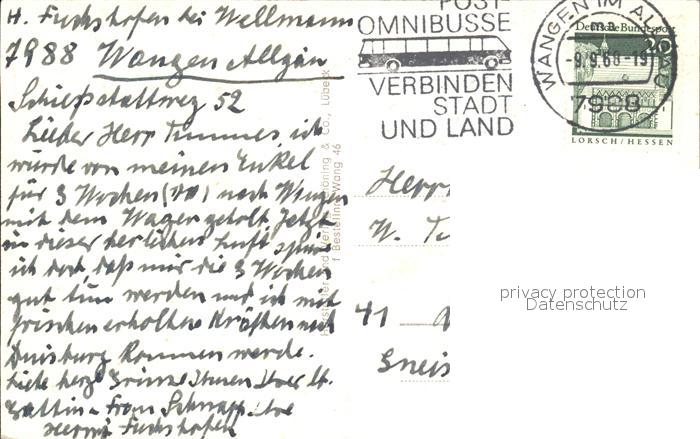 H. Fuchshofen bei Wellmann
7988 Wangen Allgäu
Schießstattweg 52
Lieber Herr Timmes, ich
wurde von meinem Enkel
für 3 Wochen nach Wangen
mit dem Wagen geholt. Jetzt
in dieser herrlichen Luft spüre
ich doch, daß mir die 3 Wochen
gut tun werden und ich mit
frischen erholten Kräften nach
Duisburg kommen werde.
herzl. Grüsse Ihnen
Gattin Frau
Fuchshofen
Bestellnr. Wang 46
& Co., Lübeck
POST-
OMNIBUSSE
VERBINDEN
STADT
UND LAND
WANGEN IM ALLGÄU
-9.9.68-19
7988
Deutsche Bundespost
20
LORSCH/HESSEN
Herrn
W.
41
Gneis
privacy protection
Datenschutz